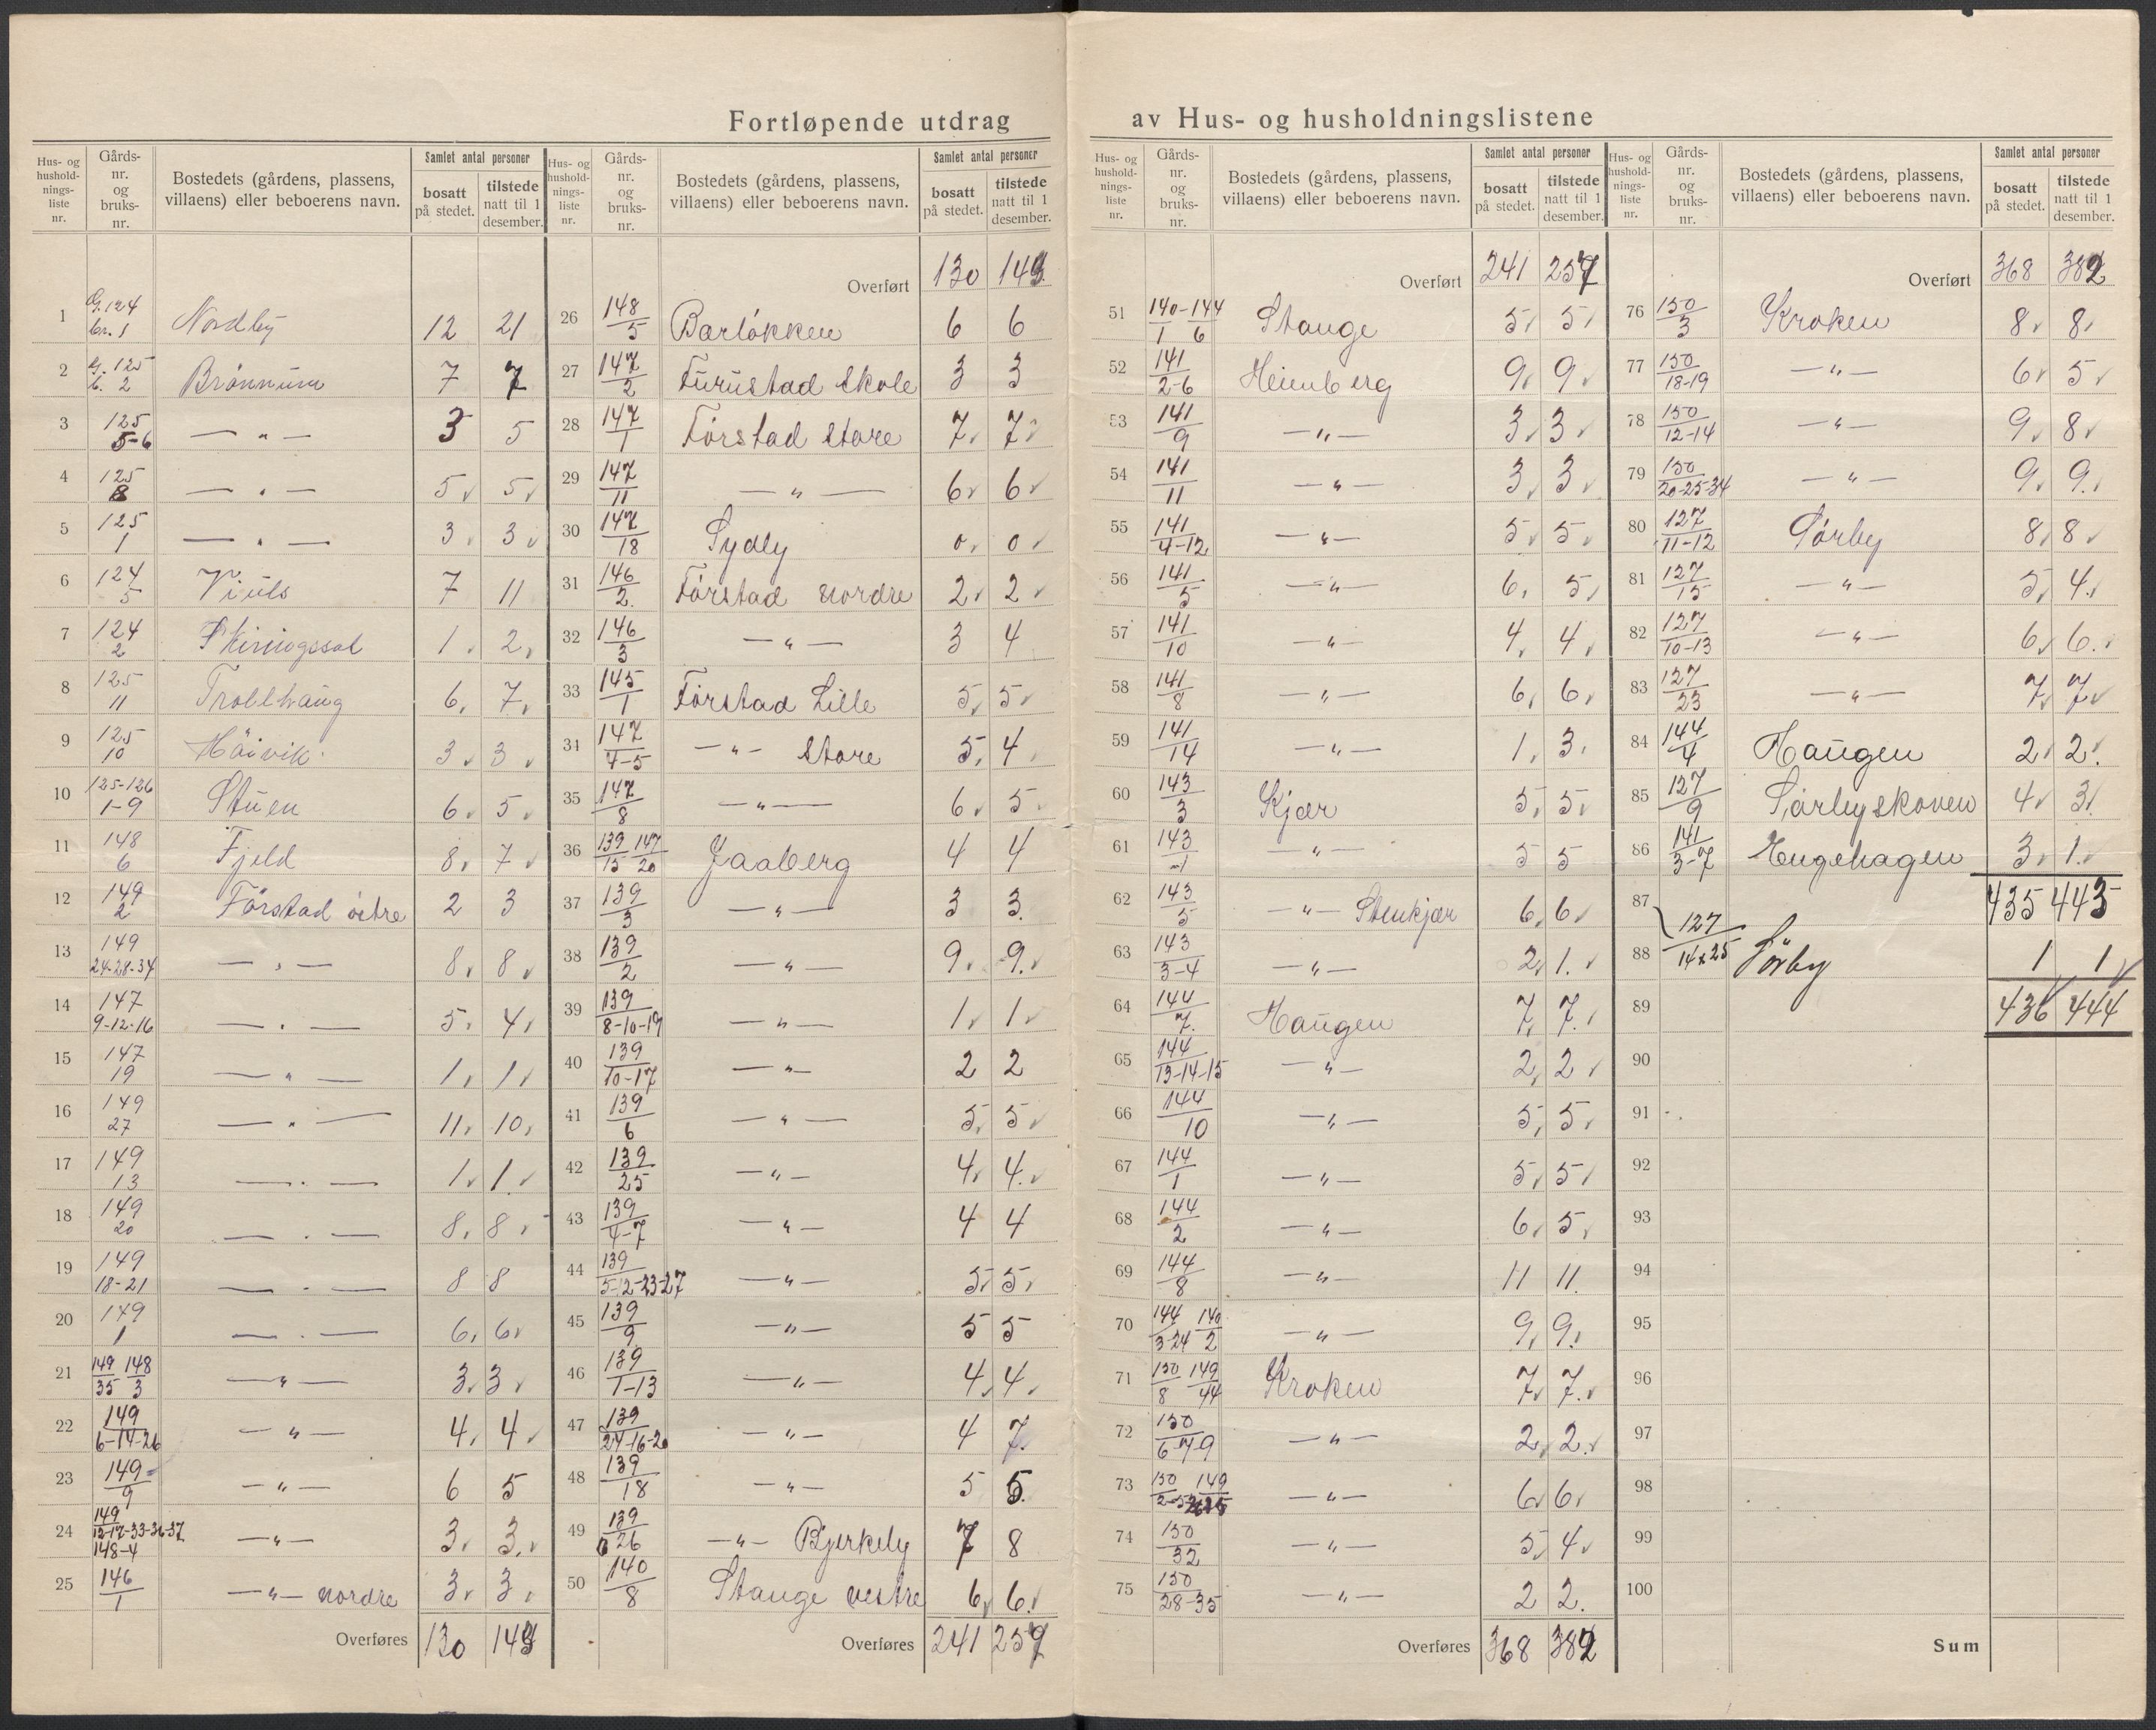 Fortløpende utdrag av Hus- og husholdningslistene
Hus- og husholdnings-liste nr. | Gårds-nr. og bruks-nr. | Bostedets (gårdens, plassens, villaens) eller beboerens navn. | Samlet antal personer: bosatt på stedet. | tilstede natt til 1 desember.
1 G.124 br.1 Nordby 12 21
2 G.125 b.2 Brönnum 7 7
3 125 5-6 —"— 3 5
4 125 8 —"— 5 5
5 125 1 —"— 3 3
6 124 5 Viuls 7 11
7 124 2 Skiringssal 1 2
8 125 11 Trollhaug 6 7
9 125 10 Håivik 3 3
10 125-126 1-9 Stuen 6 5
11 148 6 Fjeld 8 7
12 149 2 Förstad östre 2 3
13 149 24-28-34 —"— 8 8
14 147 9-12-16 —"— 5 4
15 147 19 —"— 1 1
16 149 27 —"— 11 10
17 149 13 —"— 1 1
18 149 20 —"— 8 8
19 149 18-21 —"— 8 8
20 149 1 —"— 6 6
21 149/35 148/3 —"— 3 3
22 149/6-14-26 —"— 4 4
23 149/9 —"— 6 5
24 149/12-17-33-36-37 148-4 —"— 3 3
25 146/1 —"— nordre 3 3
Overføres 130 143
Overført 130 143
26 148/5 Barlökken 6 6
27 147/2 Furustad Skole 3 3
28 147/1 Förstad store 7 7
29 147/11 —"— 6 6
30 147/18 Sydly 0 0
31 146/2 Förstad nordre 2 2
32 146/3 —"— 3 4
33 145/1 Förstad Lille 5 5
34 147/4-5 —"— Store 5 4
35 147/8 —"— 6 5
36 139/15 147/20 Jaaberg 4 4
37 139/3 —"— 3 3
38 139/2 —"— 9 9
39 139/8-10-19 —"— 1 1
40 139/10-17 —"— 2 2
41 139/6 —"— 5 5
42 139/25 —"— 4 4
43 139/4-7 —"— 4 4
44 139/5-12-23-27 —"— 5 5
45 139/9 —"— 5 5
46 139/1-13 —"— 4 4
47 139/24-16-20 —"— 4 7
48 139/18 —"— 5 5
49 139/26 —"— Bjerkely 7 8
50 140/8 Stange vestre 6 6
Overføres 241 257
Overført 241 257
51 140-144/1 6 Stange 5 5
52 141/2-6 Heimberg 9 9
53 141/9 —"— 3 3
54 141/11 —"— 3 3
55 141/4-12 —"— 5 5
56 141/5 —"— 6 5
57 141/10 —"— 4 4
58 141/8 —"— 6 6
59 141/14 —"— 1 3
60 143/3 Kjær 5 5
61 143/1 —"— 5 5
62 143/5 —"— Stenkjær 6 6
63 143/3-4 —"— 2 1
64 144/7 Haugen 7 7
65 144/13-14-15 —"— 2 2
66 144/10 —"— 5 5
67 144/1 —"— 5 5
68 144/2 —"— 6 5
69 144/8 —"— 11 11
70 144/3-24 140/2 —"— 9 9
71 150/8 149/44 Kroken 7 7
72 150/6-7-9 —"— 2 2
73 150 149 —"— 6 6
74 150/32 —"— 5 4
75 150/28-35 —"— 2 2
Overføres 368 382
Overført 368 382
76 150/3 Kroken 8 8
77 150/18-19 —"— 6 5
78 150/12-14 —"— 9 8
79 150/20-25-34 —"— 9 9
80 127/11-12 Sörby 8 8
81 127/15 —"— 5 4
82 127/10-13 —"— 6 6
83 127/23 —"— 7 7
84 144/4 Haugen 2 2
85 127/9 Sörbyskoven 4 3
86 141/3-7 Engehagen 3 1
87 435 443
88 127/14 x 25 Sörby 1 1
89 436 444
90
91
92
93
94
95
96
97
98
99
100
Sum